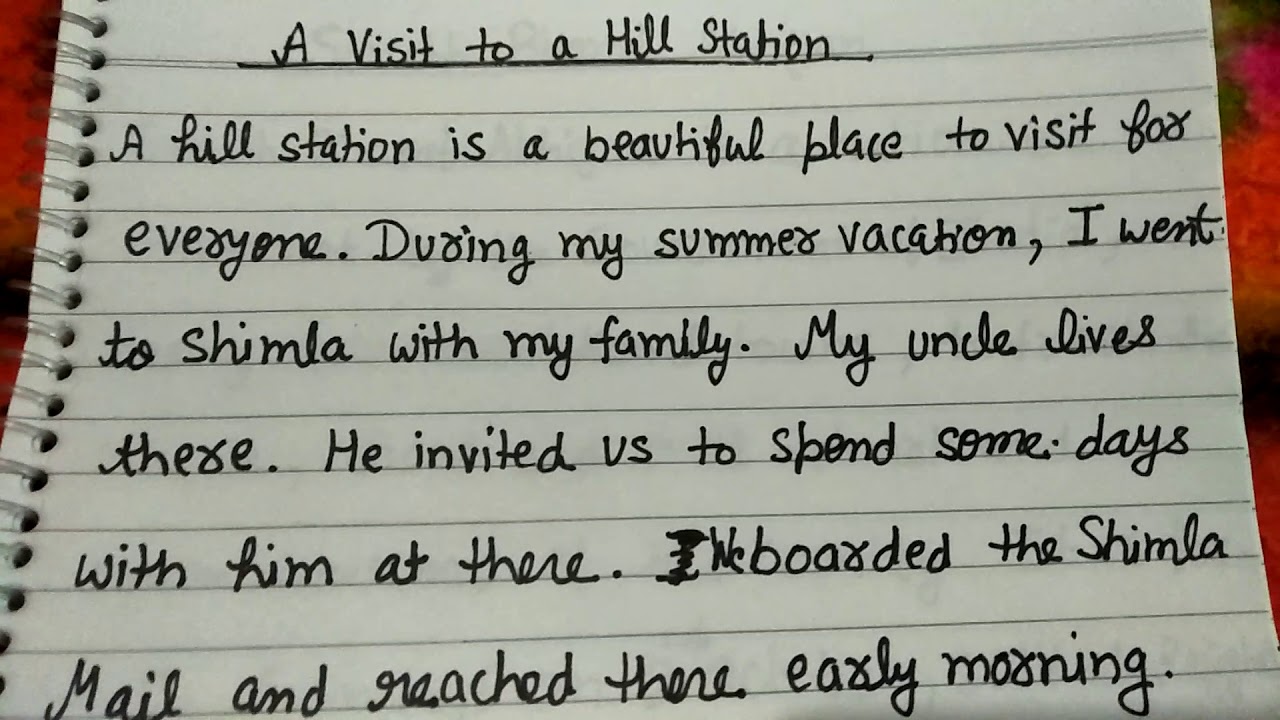 A Visit to a Hill Station.
A hill station is a beautiful place to visit for
everyone. During my summer vacation, I went
to Shimla with my family. My uncle lives
there. He invited us to spend some days
with him at there. We boarded the Shimla
Mail and reached there early morning.